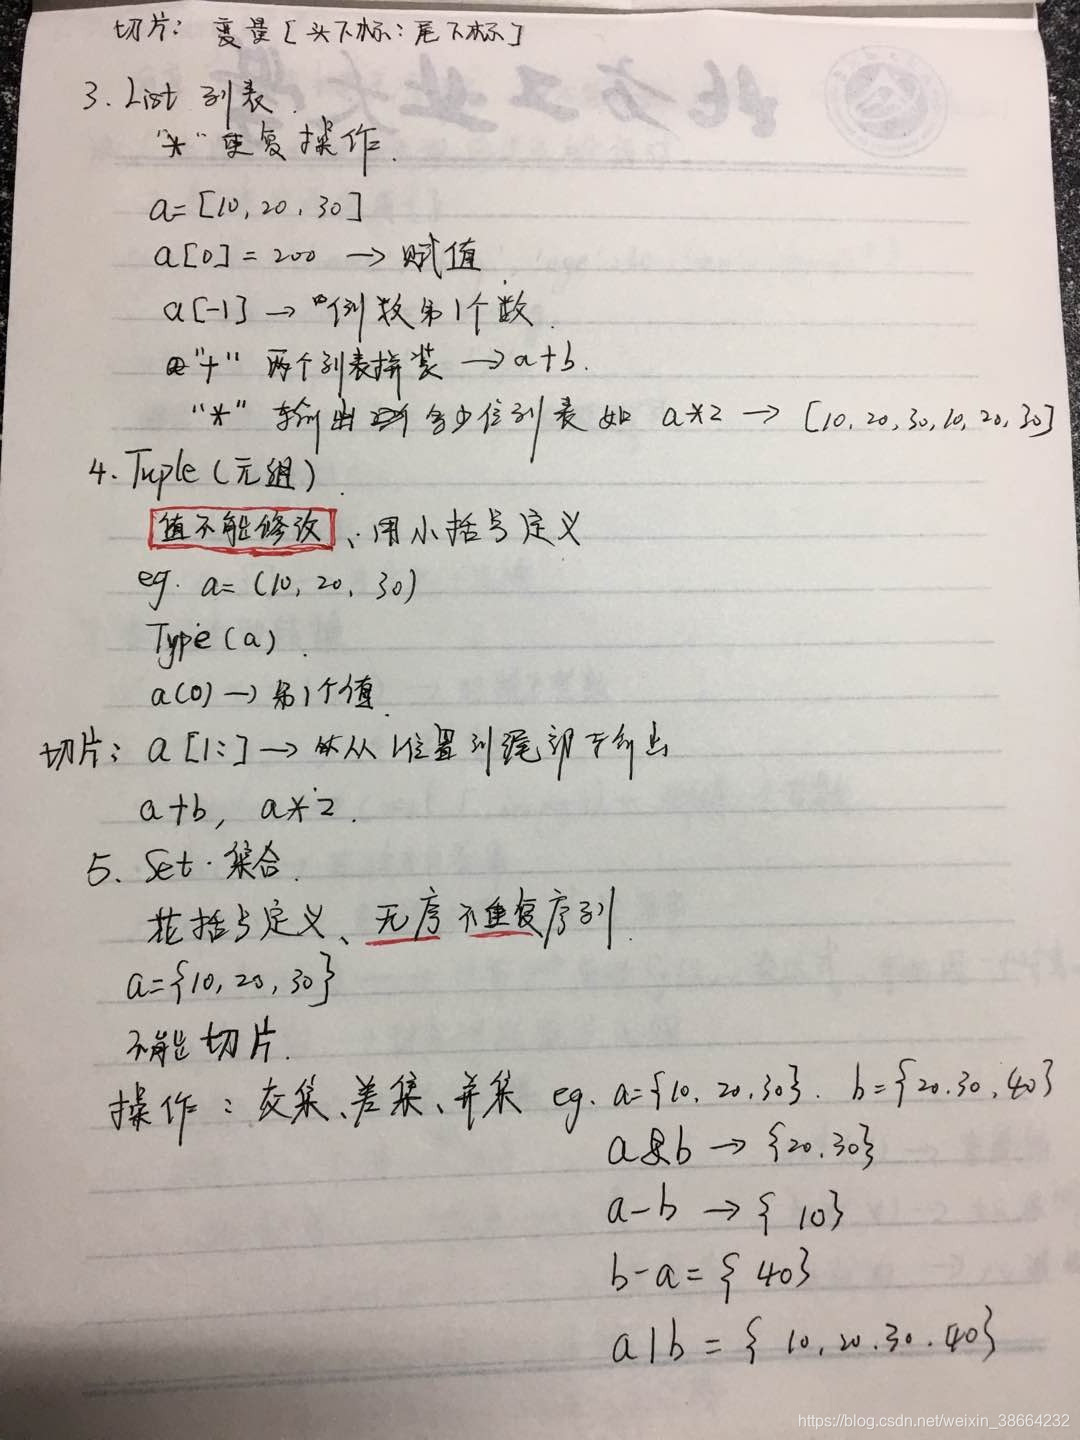 切片: 变量[头下标:尾下标]
3. List 列表.
"*" 重复操作.
a=[10, 20, 30]
a[0] = 200 → 赋值
a[-1] → 倒数第1个数.
"+" 两个列表拼装 → a+b.
"*" 输出 多少位列表 如 a*2 → [10, 20, 30, 10, 20, 30]
4. Tuple (元组).
值不能修改、用小括号定义
eg. a= (10, 20, 30)
Type(a).
a(0) → 第1个值.
切片: a[1:] → 从1位置到尾部输出
a+b, a*2.
5. Set. 集合.
花括号定义、无序不重复序列.
a={10, 20, 30}
不能切片.
操作: 交集、差集、并集 eg. a={10, 20, 30}. b={20.30.40}
a&b → {20.30}
a-b → { 10}
b-a = { 40}
a|b = { 10, 20.30.40}
https://blog.csdn.net/weixin_38664232